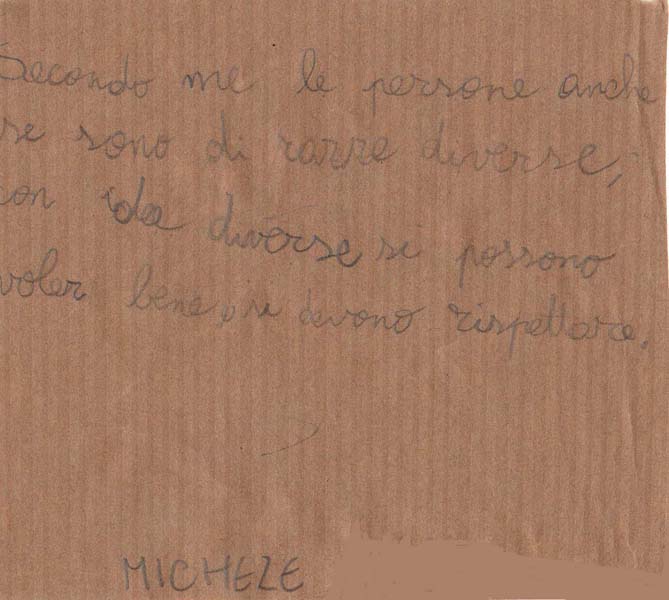 Secondo me le persone anche
se sono di razze diverse,
con idee diverse si possono
voler bene, e si devono rispettare.
MICHELE